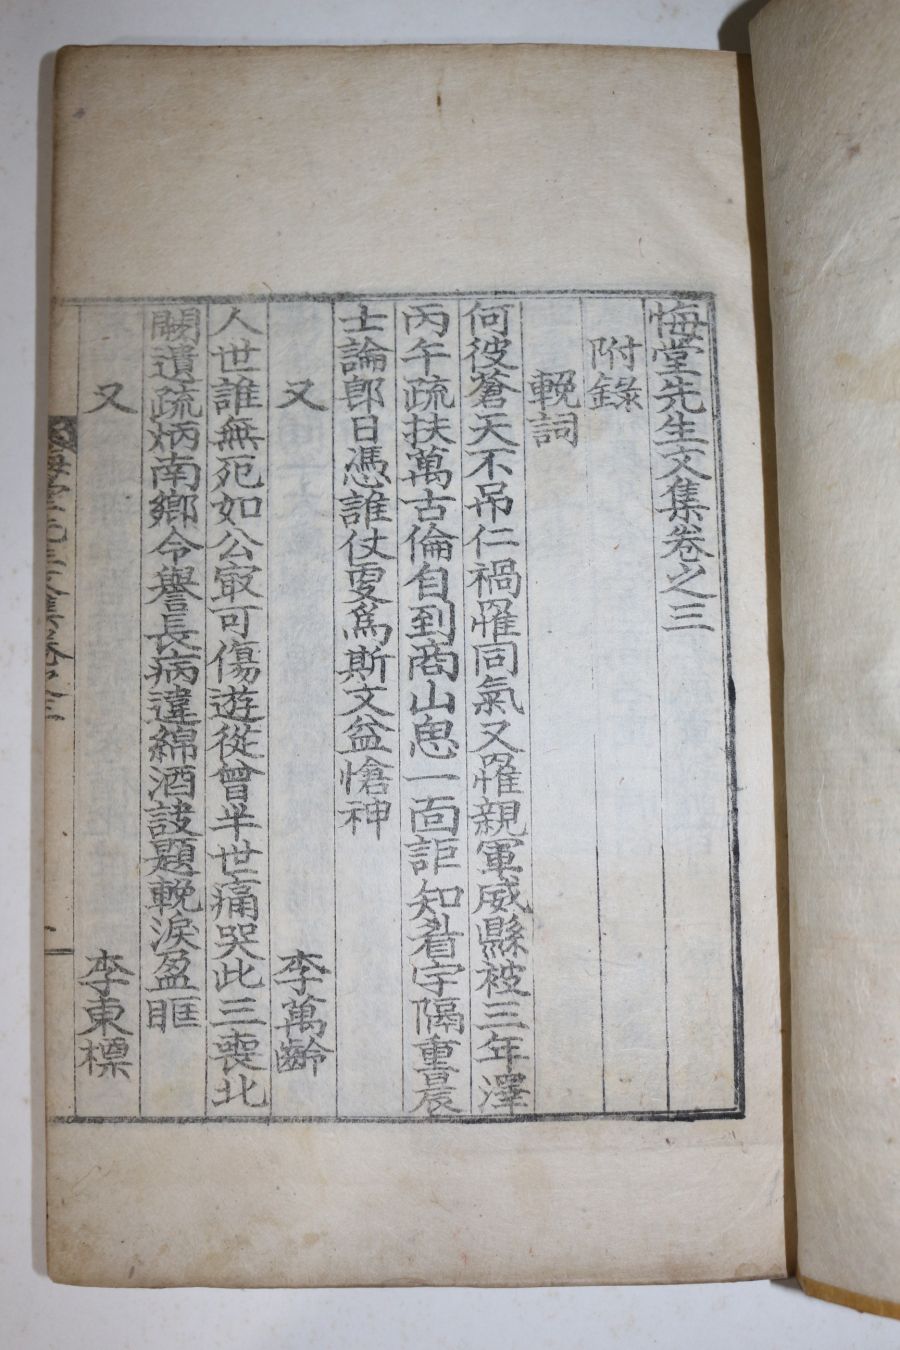 悔堂先生文集卷之三
附錄
輓詞
何彼蒼天不吊仁禍罹同氣又罹親軍威縣被三年澤
丙午疏扶萬古倫自到商山思一面詎知看字隔重晨
士論郎日憑誰仗更爲斯文益愴神
又 李萬齡
人世誰無死如公㝡可傷遊從曾半世痛哭此三喪北
闕遺疏炳南鄉令譽長病違綿酒設題輓淚盈眶
又 李東標
悔堂先生文集卷之三 一